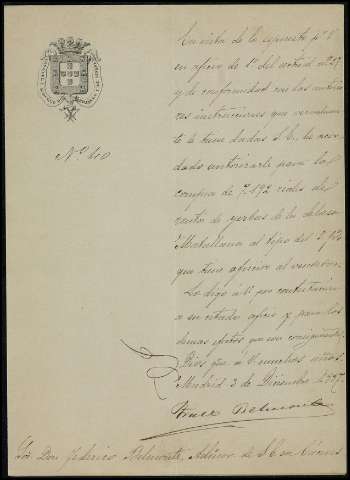 En vista de lo espuesto pr V.
en oficio de 1º del actual nº 297
y de conformidad con las
instrucciones que
te tiene dadas S. E., ha acor-
dado autorizarle para la
compra de 7.692 reales de
renta de yerbas de la dehesa
"Matallana" al tipo del
que tiene ofrecido al vendedor.
Lo digo á V. por contestacion
a su citado oficio y para los
demas efectos que son consiguientes.
Dios gue. á V. muchos años.
Madrid 3 de Diciembre de 1887.
Belmonte
Nº 40
Sor. Don Federico Belmonte, Admor. de S. E. en Cáceres